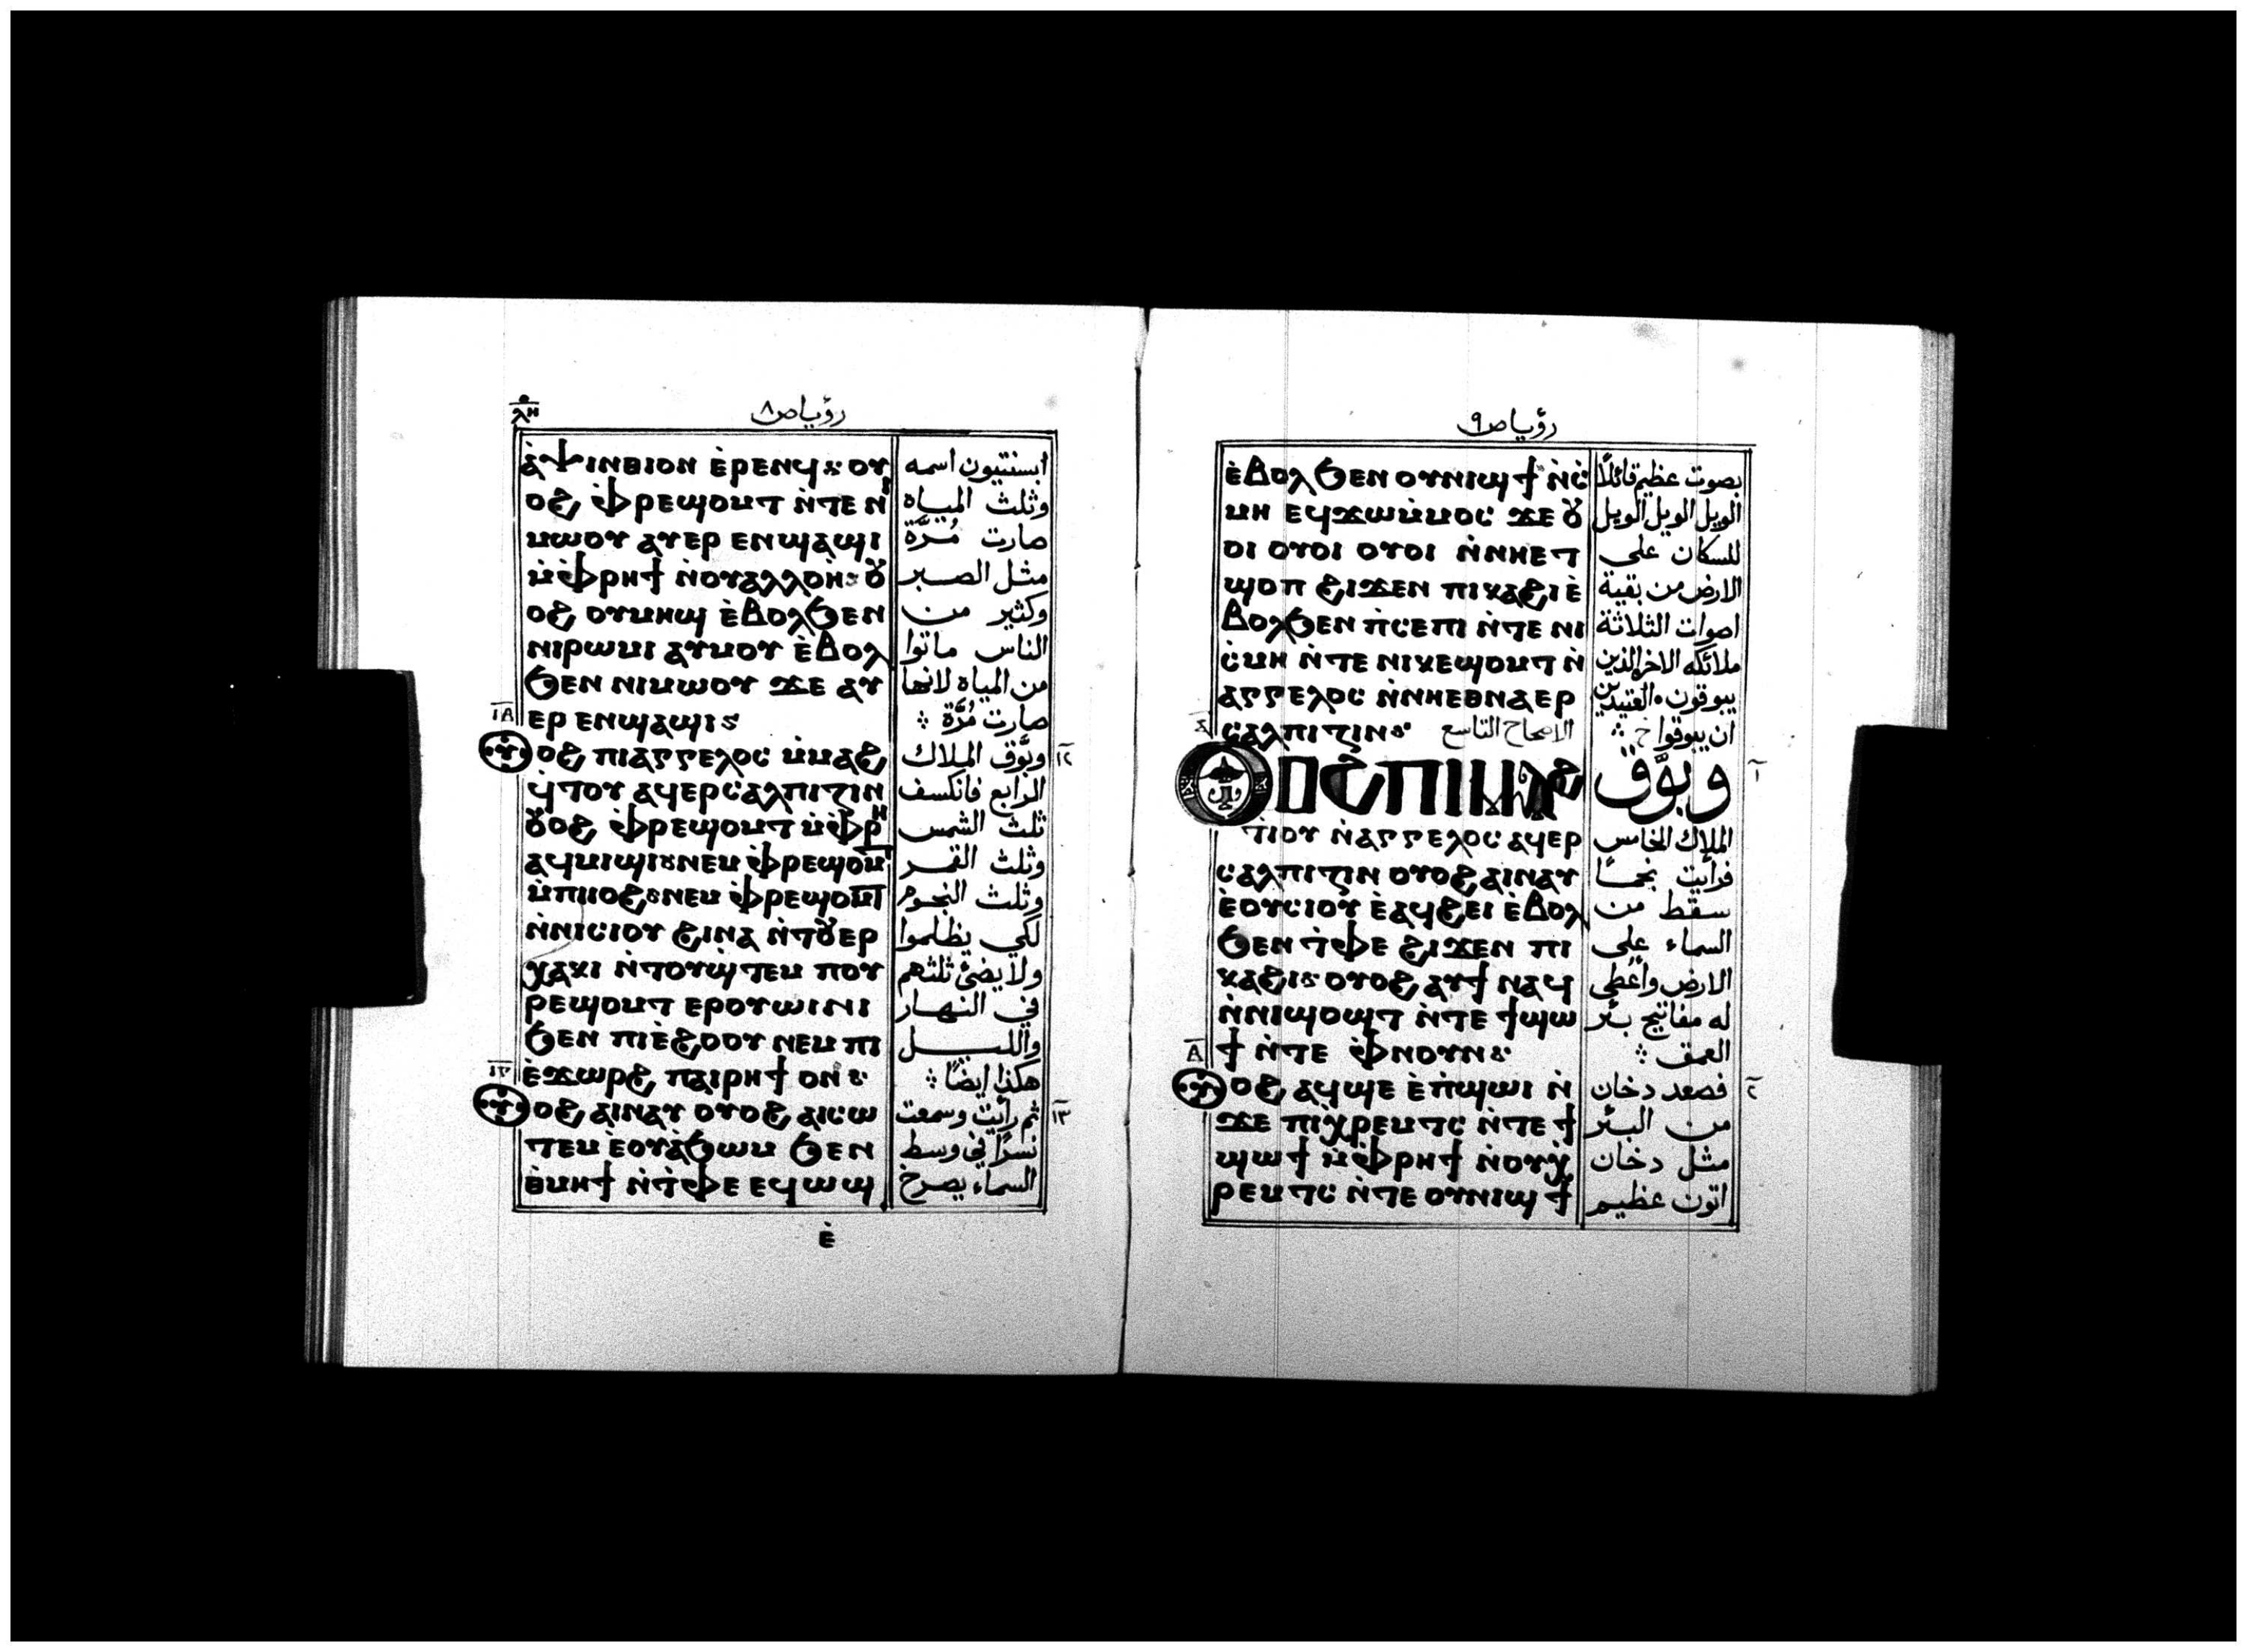 ⲗⲏ
رؤيا ص ٨
ⲁ̀ⲯⲓⲛⲑⲓⲟⲛ ⲉ̀ⲣⲉⲛϥ: ⲟⲩ
ⲟϩ ⲫ̀ⲣⲉϣⲟⲙⲧ ⲛ̀ⲧⲉ ⲛⲓ
ⲙⲱⲟⲩ ⲁⲩⲉⲣ ⲉⲛϣⲁϣⲓ
ⲙ̀ⲫ̀ⲣⲏϯ ⲛ̀ⲟⲩⲁⲗⲗⲟⲏ: ⲟⲩ
ⲟϩ ⲟⲩⲙⲏϣ ⲉ̀ⲃⲟⲗϧⲉⲛ
ⲛⲓⲣⲱⲙⲓ ⲁⲩⲙⲟⲩ ⲉ̀ⲃⲟⲗ
ϧⲉⲛ ⲛⲓⲙⲱⲟⲩ ϫⲉ ⲁⲩ
ⲉⲣ ⲉⲛϣⲁϣⲓ:
ⲟⲩⲟϩ ⲡⲓⲁⲅⲅⲉⲗⲟⲥ ⲙ̀ⲙⲁϩ
ϥ̀ⲧⲟⲩ ⲁϥⲉⲣⲥⲁⲗⲡⲓⲍⲓⲛ
ⲟⲩⲟϩ ⲫ̀ⲣⲉϣⲟⲙⲧ ⲙ̀ⲫ̀ⲣⲏ
ⲁϥⲙⲓϣⲓ: ⲛⲉⲙ ⲫ̀ⲣⲉϣⲟⲙⲧ
ⲙ̀ⲡⲓⲓⲟϩ: ⲛⲉⲙ ⲫ̀ⲣⲉϣⲟⲙⲧ
ⲛ̀ⲛⲓⲥⲓⲟⲩ ϩⲓⲛⲁ ⲛ̀ⲧⲟⲩⲉⲣ
ⲭⲁⲕⲓ ⲛ̀ⲧⲟⲩϣ̀ⲧⲉⲙ ⲡⲟⲩ
ⲣⲉϣⲟⲙⲧ ⲉⲣⲟⲩⲱⲓⲛⲓ
ϧⲉⲛ ⲡⲓⲉ̀ϩⲟⲟⲩ ⲛⲉⲙ ⲡⲓ
ⲉ̀ϫⲱⲣϩ ⲡⲁⲓⲣⲏϯ ⲟⲛ:
ⲟⲩⲟϩ ⲁⲓⲛⲁⲩ ⲟⲩⲟϩ ⲁⲓⲥⲱ
ⲧⲉⲙ ⲉ̀ⲟⲩⲁ̀ϧⲱⲙ ϧⲉⲛ
ⲑ̀ⲙⲏϯ ⲛ̀ⲧ̀ⲫⲉ ⲉϥⲱϣ
ⲉ̀
ابسنتيون اسمه
وثلث المياه
صارت مُرَّة
مثل الصبر
وكثير من
الناس ماتوا
من المياه لانها
صارت مُرَّة
١٢
وبوَّق الملاك
الرابع فانكسف
ثلث الشمس
وثلث القمر
وثلث النجوم
لكي يظلموا
ولا يضئ ثلثهم
في النهار
والليل
هكذا ايضاً
١٣
ثم رأيت وسمعت
نسراً في وسط
السماء يصرخ
رؤيا ص ٩
ⲉ̀ⲃⲟⲗϧⲉⲛ ⲟⲩⲛⲓϣϯ ⲛ̀ⲥ̀
ⲙⲏ ⲉϥϫⲱⲙ̀ⲙⲟⲥ ϫⲉ ⲟⲩ
ⲟⲓ ⲟⲩⲟⲓ ⲟⲩⲟⲓ ⲛ̀ⲛⲏⲉⲧ
ϣⲟⲡ ϩⲓϫⲉⲛ ⲡⲓⲕⲁϩⲓ ⲉ̀
ⲃⲟⲗϧⲉⲛ ⲡ̀ⲥⲉⲡⲓ ⲛ̀ⲧⲉ ⲛⲓ
ⲥ̀ⲙⲏ ⲛ̀ⲧⲉ ⲛⲓⲕⲉϣⲟⲙⲧ ⲛ̀
ⲁⲅⲅⲉⲗⲟⲥ ⲛ̀ⲛⲏⲉⲑⲛⲁⲉⲣ
ⲥⲁⲗⲡⲓⲍⲓⲛ: الاصحاح التاسع
ⲟⲩⲟϩ ⲡⲓⲙⲁϩ
ⲧ̀ⲓⲟⲩ ⲛ̀ⲁⲅⲅⲉⲗⲟⲥ ⲁϥⲉⲣ
ⲥⲁⲗⲡⲓⲍⲓⲛ ⲟⲩⲟϩ ⲁⲓⲛⲁⲩ
ⲉ̀ⲟⲩⲥⲓⲟⲩ ⲉ̀ⲁϥϩⲉⲓ ⲉ̀ⲃⲟⲗ
ϧⲉⲛ ⲧ̀ⲫⲉ ϩⲓϫⲉⲛ ⲡⲓ
ⲕⲁϩⲓ: ⲟⲩⲟϩ ⲁⲩϯ ⲛⲁϥ
ⲛ̀ⲛⲓϣⲟϣⲧ ⲛ̀ⲧⲉ ϯϣⲱ
ϯ ⲛ̀ⲧⲉ ⲫ̀ⲛⲟⲩⲛ:
ⲟⲩⲟϩ ⲁϥϣⲉ ⲉ̀ⲡ̀ϣⲱⲓ ⲛ̀
ϫⲉ ⲡⲓⲭ̀ⲣⲉⲙⲧⲥ ⲛ̀ⲧⲉ ϯ
ϣⲱϯ ⲙ̀ⲫ̀ⲣⲏϯ ⲛ̀ⲟⲩⲭ̀
ⲣⲉⲙⲧⲥ ⲛ̀ⲧⲉ ⲟⲩⲛⲓϣϯ
بصوت عظيم قائلاً
الويل الويل الويل
للسكان على
الارض من بقية
اصوات الثلاثة
ملائكه الاخر الذين
يبوقون العتيدين
ان يبوقوا
١
وبوَّق
الملاك الخامس
فرأيت نجماً
سقط من
السماء على
الارض واُعطى
له مفاتيح بئر
العمق
٢
فصعد دخان
من البئر
مثل دخان
اتون عظيم